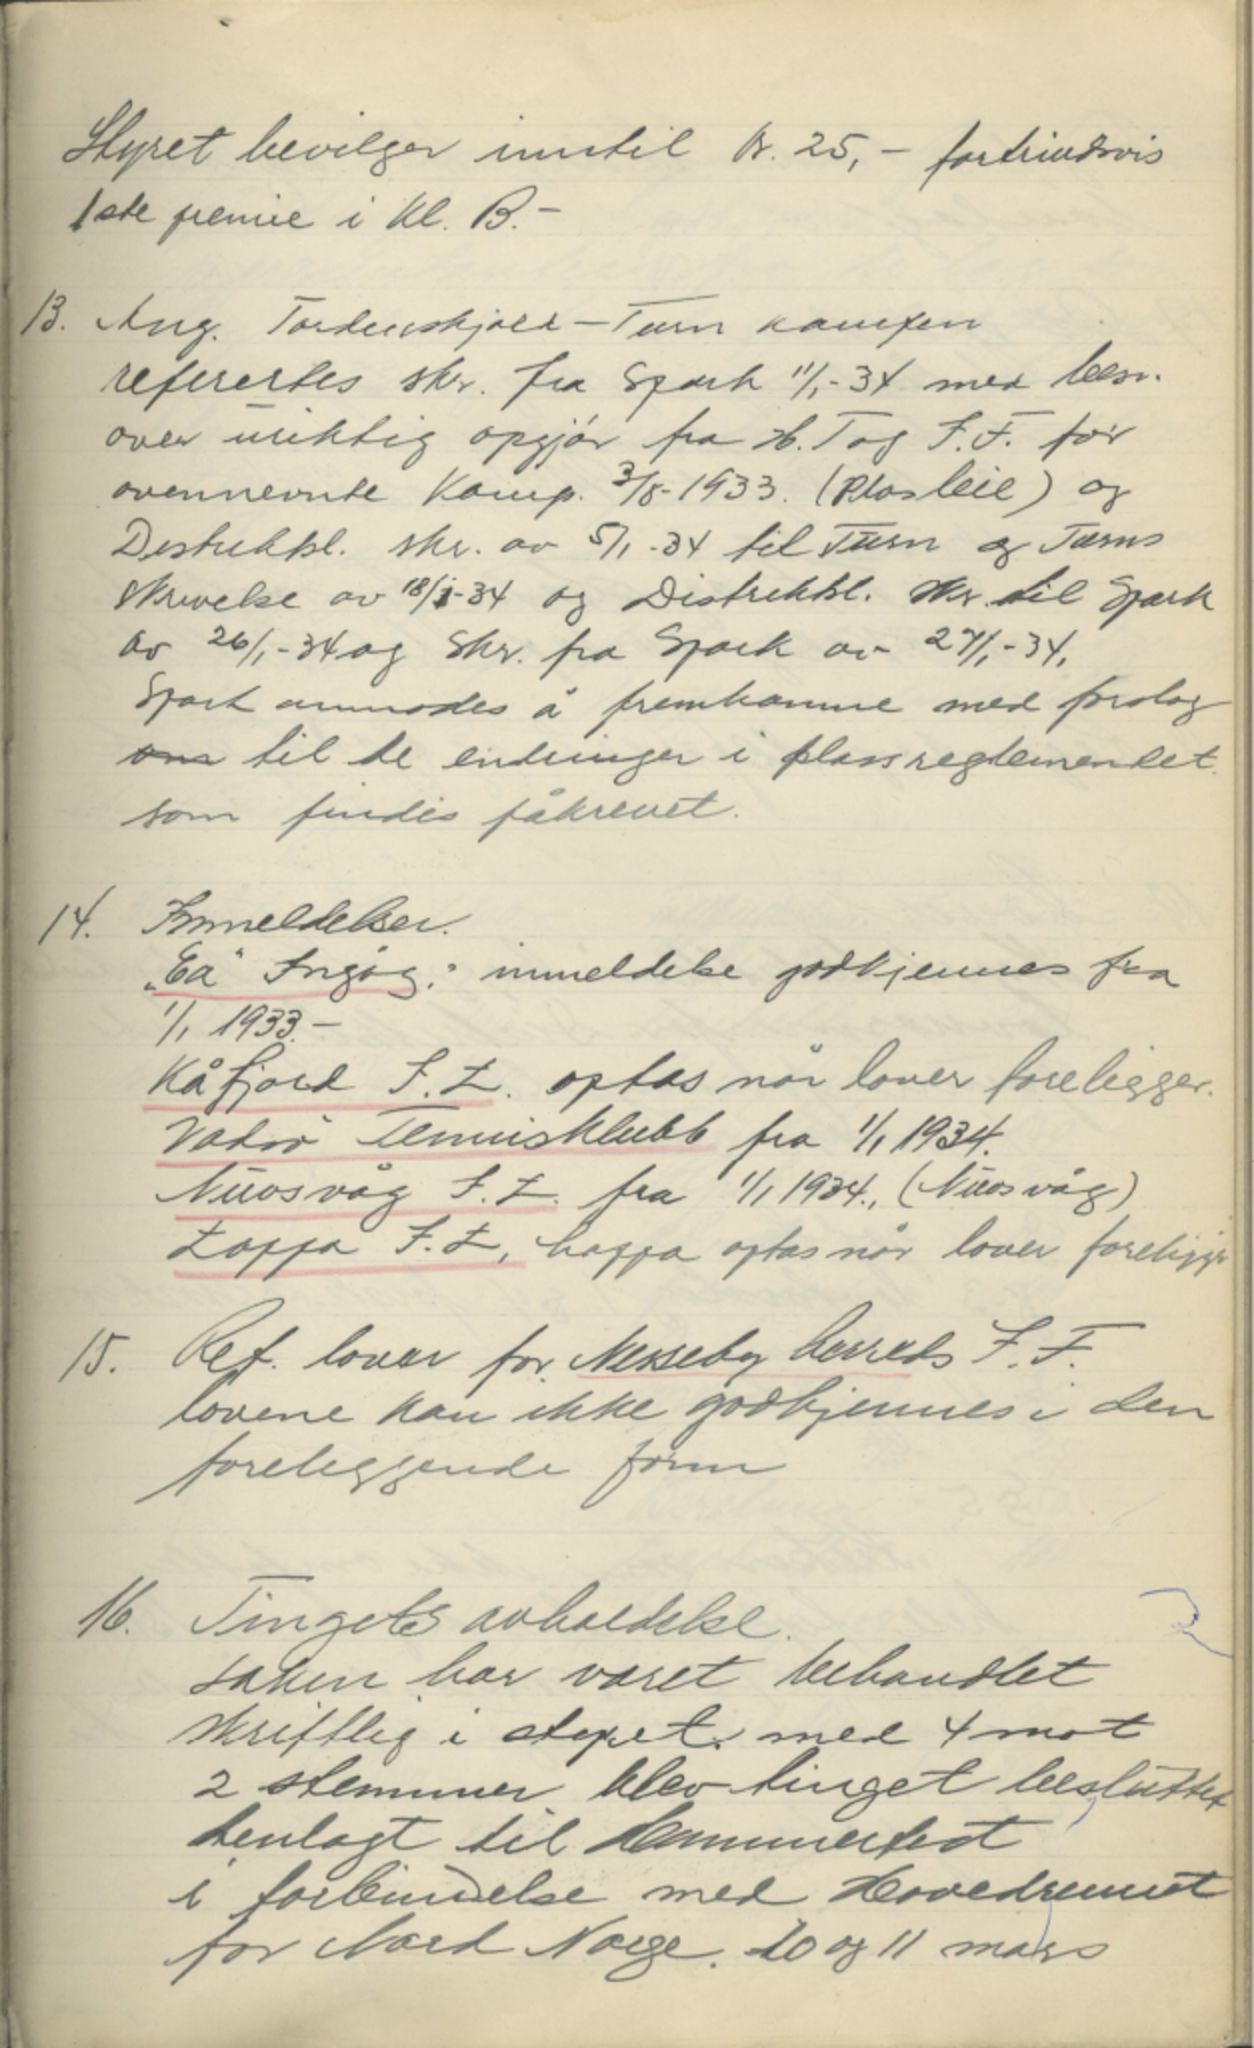 Styret bevilger inntil kr. 25,- fortrindsvis
1ste premie i kl. B.-
13. Ang. Tordenskjold - Turn kampen
referertes skr. fra Spark 11/1-34 med besv.
over uriktig opgjör fra H. T og I.F. for
ovennevnte Kamp. 3/8-1933. (Plasleie) og
Distriktsl. skr. av 5/1-34 til Turn og Turns
Skrivelse av 18/1-34 og Distriktsl. skr. til Spark
av 26/1-34 og Skr. fra Spark av 27/1-34.
Spark anmodes å fremkomme med forslag
om til de endringer i plassreglementet
som findes påkrevet.
14. Innmeldelser.
"Eå" Ingöy: innmeldelse godkjennes fra
1/1 1933.-
Kåfjord I.L. optas når lover foreligger.
Vadsö Tennisklubb fra 1/1 1934.
Nuvsvåg I.L. fra 1/1 1934., (Nuvsvåg)
Loppa I.L, Loppa optas når lover foreligger
15. Ref. lover for Nesseby herreds I.F.
lovene kan ikke godkjennes i den
foreleggende form
16. Tingets avholdelse.
Saken har været behandlet
skriftlig i styret. med 4 mot
2 stemmer blev tinget besluttet
henlagt til Hammerfest
i forbindelse med Hovedrennet
for Nord Norge. 10 og 11 mars